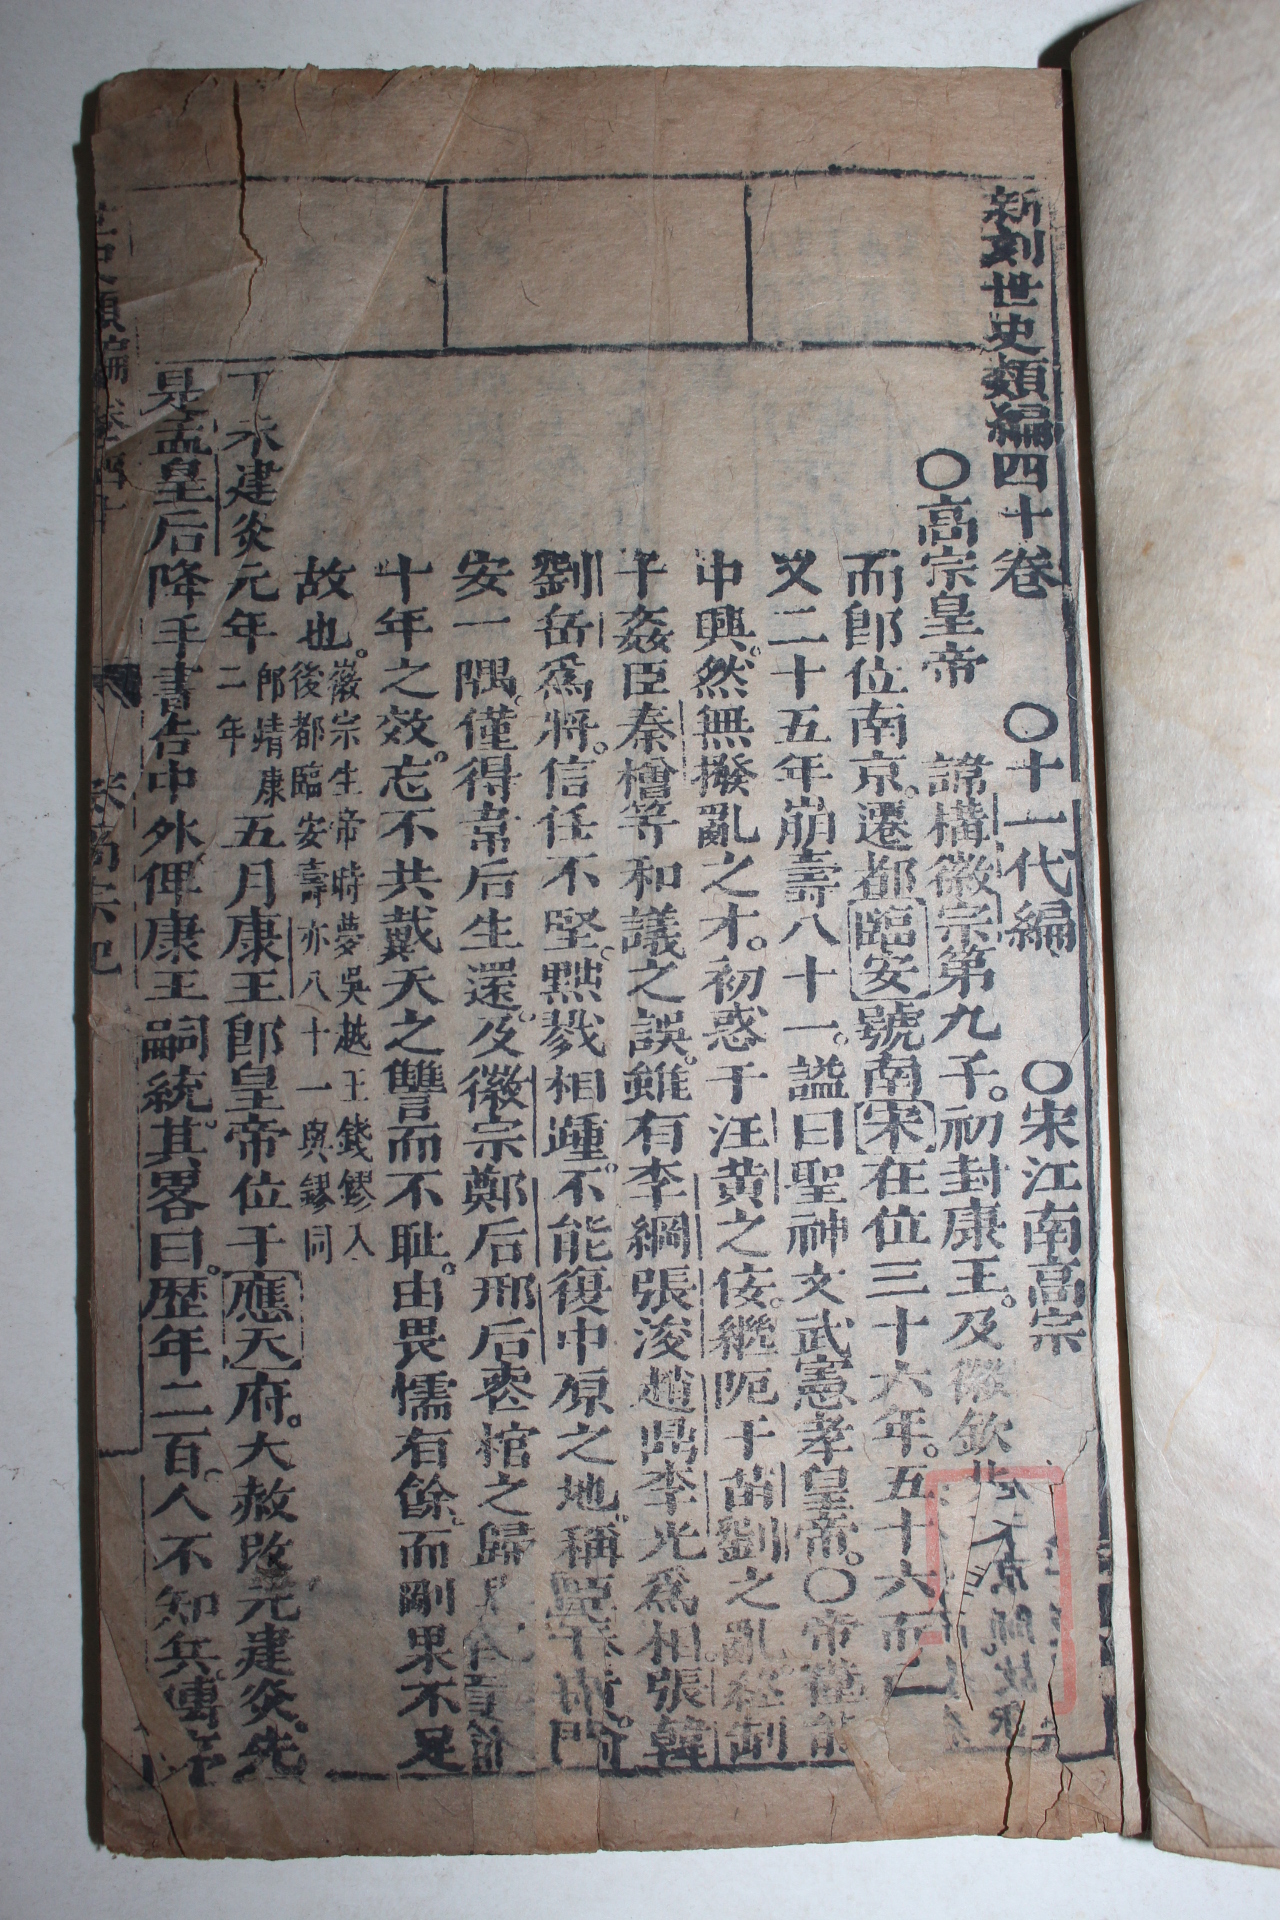 新刻世史類編四十卷　○十一代編　○宋江南高宗
○高宗皇帝　諱構徽宗第九子。初封康王。及徽欽北
而即位南京。遷都臨安號南宋在位三十六年。五十六而
又二十五年崩壽八十一。謚曰聖神文武憲孝皇帝。○帝
中興。然無撥亂之才。初惑于汪黃之佞。繼阨于苗劉之亂。
于姦臣秦檜等和議之誤。雖有李綱張浚趙鼎李光爲相。張韓
劉岳爲將。信任不堅。黜戮相踵。不能復中原之地。稱
安一隅。僅得韋后生還。及徽宗鄭后邢后葬棺之歸
十年之效。忘不共戴天之讐而不耻。由畏懦有餘。而剛果不足
故也。徽宗生帝時夢吳越王錢鏐入
後都臨安壽亦八十一與鏐同
丁未建炎元年即靖康二年五月康王即皇帝位于應天府。大赦改元建炎。先
是孟皇后降手書告中外俾康王嗣統。其畧曰。歷年二百。人不知兵。傳